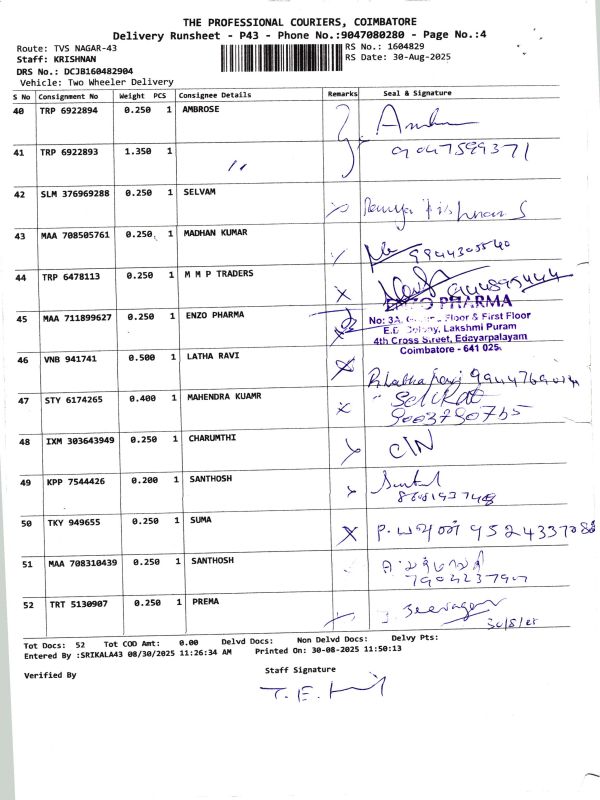 THE PROFESSIONAL COURIERS, COIMBATORE
Delivery Runsheet - P43 - Phone No.:9047080280 - Page No.:4
Route: TVS NAGAR-43 RS No.: 1604829
Staff: KRISHNAN RS Date: 30-Aug-2025
DRS No.: DCJB160482904
Vehicle: Two Wheeler Delivery
S No Consignment No Weight PCS Consignee Details Remarks Seal & Signature
40 TRP 6922894 0.250 1 AMBROSE
9047599371
41 TRP 6922893 1.350 1 "
42 SLM 376969288 0.250 1 SELVAM
43 MAA 708505761 0.250 1 MADHAN KUMAR
44 TRP 6478113 0.250 1 M M P TRADERS
ENZO PHARMA
45 MAA 711899627 0.250 1 ENZO PHARMA
Floor & First Floor
E.B. Colony, Lakshmi Puram
4th Cross Street, Edayarpalayam
Coimbatore - 641 025.
46 VNB 941741 0.500 1 LATHA RAVI
47 STY 6174265 0.400 1 MAHENDRA KUAMR
9003730765
48 IXM 303643949 0.250 1 CHARUMTHI C/N
49 KPP 7544426 0.200 1 SANTHOSH
50 TKY 949655 0.250 1 SUMA
51 MAA 708310439 0.250 1 SANTHOSH
52 TRT 5130907 0.250 1 PREMA
30/8/25
Tot Docs: 52 Tot COD Amt: 0.00 Delvd Docs: Non Delvd Docs: Delvy Pts:
Entered By :SRIKALA43 08/30/2025 11:26:34 AM Printed On: 30-08-2025 11:50:13
Verified By Staff Signature